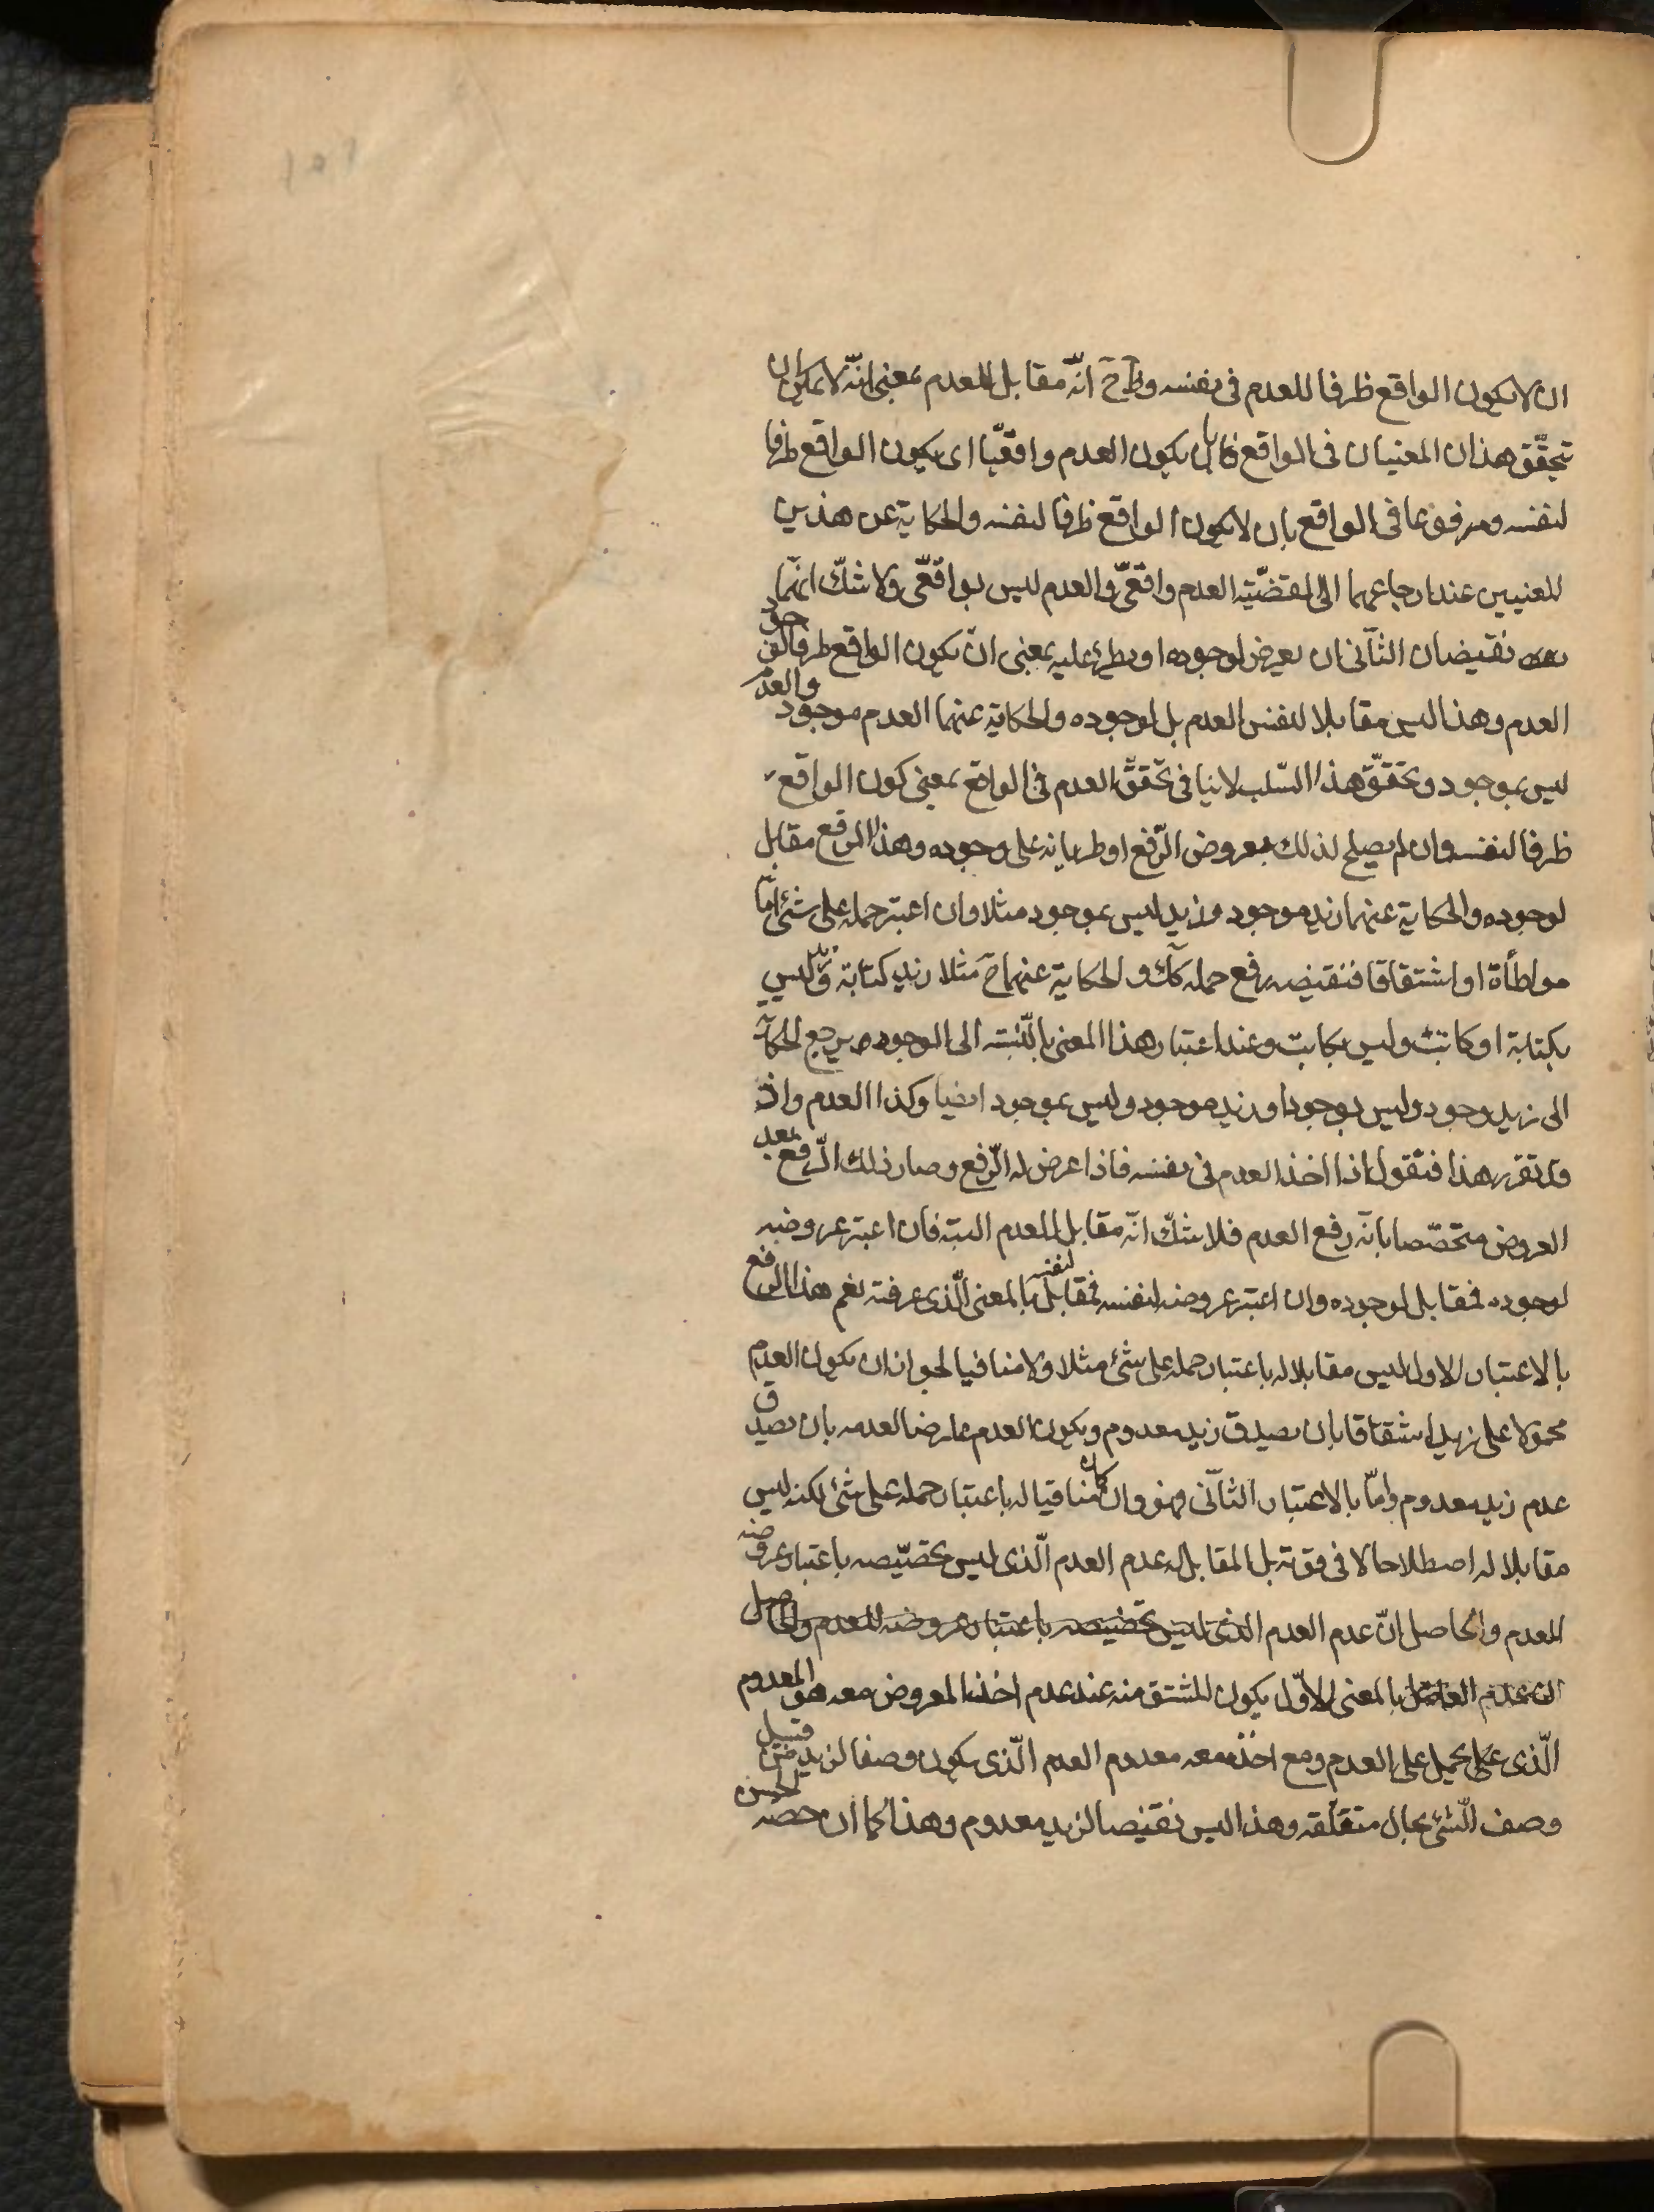 ان لا يكون الواقع ظرفا للعدم فى نفسه وظ ح انّه مقابل للعدم بمعنى انّه لا يمكن ان
يتحقّق هذان المعنيان فى الواقع بان يكون العدم واقعيّا اى يكون الواقع ظرفا
لنفسه ومرفوعا فى الواقع بان لا يكون الواقع ظرفا لنفسه والحكاية عن هذين
المعنيين عند ارجاعهما الى القضيّة العدم واقعىّ والعدم ليس بواقعّى ولا شكّ انّهما
نقيضان الثّانى ان يعرض لوجوده او يطرئ عليه بمعنى ان يكون الواقع ظرفا لوجود
العدم وهذا ليس مقابلا لنفس العدم بل لوجوده والحكاية عنهما العدم موجود والعدم
ليس بموجود وتحقّق هذا السّلب لا ينافى تحقّق العدم فى الواقع بمعنى كون الواقع
ظرفا لنفسه وان لم يصلح لذلك بعروض الرّفع او طريانه على وجوده وهذا الرفع مقابل
لوجوده والحكاية عنهما زيد موجود وزيد ليس بموجود مثلا وان اعتبر حمله على شئ امّا
مواطأة او اشتقاقا فنقيضه رفع حمله كك والحكاية عنهما ح مثلا زيد كتابة وزيد ليس
بكتابة او كاتب وليس بكاتب وعند اعتبار هذا المعنى بالنّسبة الى الوجود يرجع الحكاية
الى زيد وجود وليس بوجود او زيد موجود وليس بموجود ايضا وكذا العدم واذ
قد تقرر هذا فنقول اذا اخذ العدم فى نفسه فاذا عرض له الرّفع وصار ذلك الرّفع بعد
العروض متخصّصا بانّه رفع العدم فلا شكّ انّه مقابل للعدم البتة فان اعتبر عروضه
لوجوده فمقابل لوجوده وان اعتبر عروضه لنفسه فمقابل لنفسه بالمعنى الّذى عرفته نعم هذا الرفع
بالاعتبار الاول ليس مقابلا له باعتبار حمله على شئ مثلا ولا منافيا لجواز ان يكون العدم
محمولا على زيد اشتقاقا بان يصدق زيد معدوم ويكون العدم عارضا لعدمه بان يصدق
عدم زيد معدوم وامّا بالاعتبار الثّانى فهو وان كان منافيا له باعتبار حمله على شئ لكنه ليس
مقابلا له اصطلاحا لا فى قوته بل المقابل له عدم العدم الّذى ليس تخصّيصه باعتبار عروضه
للعدم والحاصل انّ عدم العدم الذى ليس تخصيصه باعتبار عروضه للعدم والحاصل
ان عدم العدم بالمعنى الاوّل يكون المشتق منه عند عدم اخذ المعروض معه هو المعدوم
الّذى يحمل على العدم ومع اخذه معه معدوم العدم الّذى يكون وصفا لزيد من قبيل
وصف الشّئ بحال متعلّقه وهذا ليس نقيضا لزيد معدوم وهذا كما ان حصة الحسن